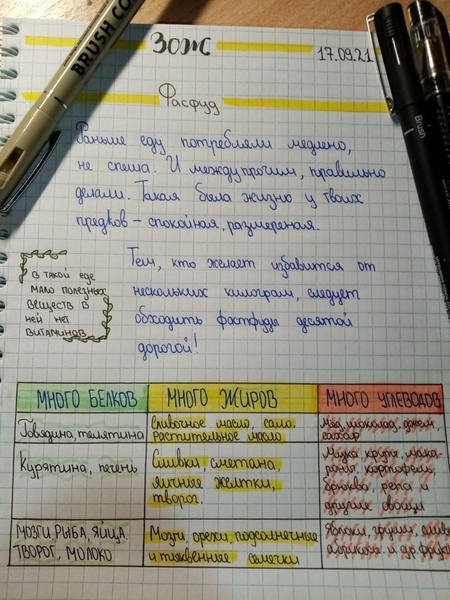 BRUSH CO
Brush
ЗОЖ
17.09.21
Фасфуд
Раньше еду потребляли медлено,
не спеша. И между прочим, правильно
делали. Такая была жизнь у твоих
предков – спокойная, размереная.
Тем, кто желает избавится от
нескольких килограм, следует
обходить фастфуды десятой
дорогой!
В ТАКОЙ ЕДЕ
МАЛО ПОЛЕЗНЫХ
ВЕЩЕСТВ В
НЕЙ НЕТ
ВИТАМИНОВ
МНОГО БЕЛКОВ
Говядина, телятина
Курятина, печень
МОЗГИ, РЫБА, ЯЙЦА.
ТВОРОГ, МОЛОКО
МНОГО ЖИРОВ
Сливочное масло, сало.
Растительное масло
Сливки, сметана,
яичные желтки,
творог.
Мозги, орехи, подсолнечные
и тыквенные семечки
МНОГО УГЛЕВОДОВ
Мёд, шоколад, джем,
сахар
Мука, крупа, мака-
роны, картофель,
брюква, репа и
другие овощи
Яблоки, груши, слив
абрикосы и др. фрук